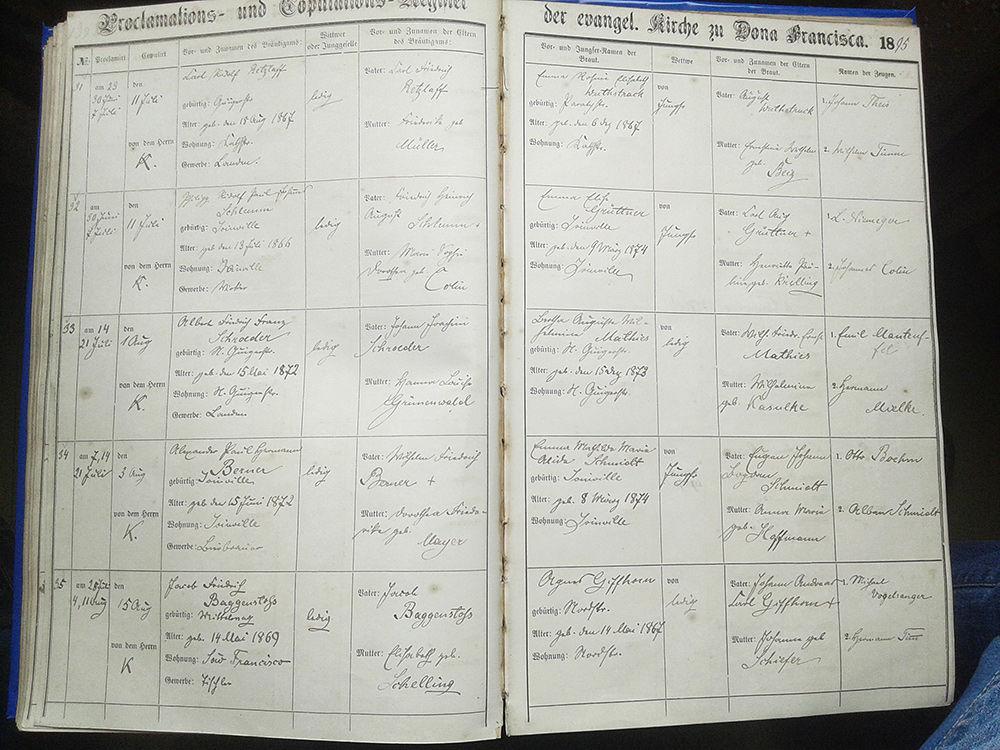 Proclamations- und Copulations-Register
der evangel. Kirche zu Dona Francisca. 1895
№. Proclamirt. Copulirt. Vor- und Zunamen des Bräutigams: Wittwer oder Junggeselle Vor- und Zunamen der Eltern des Bräutigams:
Vor- und Jungfer-Namen der Braut. Wittwe Vor- und Zunamen der Eltern der Braut. Namen der Zeugen.
31 am 23
30 Juni
7 Juli
den
11 Juli
von dem Herrn
K.
Carl Rudolf Retzlaff
gebürtig:
Alter: geb. den 15 Aug 1867
Wohnung:
Gewerbe: Landm.
ledig
Vater: Carl Friedrich
Retzlaff
Mutter: Friederike geb
Müller
Emma Rosine Elisabeth
Wuthstrack
gebürtig:
Alter: geb. den 6 Dez 1867
Wohnung:
von
Jungfr
Vater: August
Wuthstrack
Mutter: Ernstine
geb.
1. Johann Theis
2. Wilhelm
32 am
30 Juni
7 Juli
den
11 Juli
von dem Herrn
K.
Philipp Rudolf Paul Johannes
Schlemm
gebürtig: Joinville
Alter: geb den 13 Juli 1866
Wohnung: Joinville
Gewerbe:
ledig
Vater: Friedrich Heinrich
August
Schlemm +
Mutter: Marie Sophie
Dorothea geb
Colin
Emma Elise
Grüttner
gebürtig: Joinville
Alter: geb. den 9 März 1874
Wohnung: Joinville
von
Jungfr
Vater: Carl Aug
Grüttner +
Mutter: Henriette Pau-
line geb.
1. L. Niemeyer
2. Johannes Colin
33 am 14
21 Juli
den
1 Aug
von dem Herrn
K.
Albert Friedrich Franz
Schroeder
gebürtig:
Alter: geb. den 15 Mai 1872
Wohnung:
Gewerbe: Landm
ledig
Vater: Johann Joachim
Schroeder
Mutter: Hanna Louise
Grünenwald
Bertha Auguste Wil-
helmine Mathies
gebürtig:
Alter: geb. den 15 Dez 1873
Wohnung:
von
ledig
Vater: Wilh. Friedr. Ernst
Mathies
Mutter: Wilhelmine
geb. Kasulke
1. Emil Manteuf-
fel
2. Hermann
Mielke
34 am 7, 14
21 Juli
den
3 Aug
von dem Herrn
K.
Alexander Paul Hermann
Berner
gebürtig: Joinville
Alter: geb den 15 Juni 1872
Wohnung: Joinville
Gewerbe: Bierbrauer
ledig
Vater: Wilhelm Friedrich
Berner +
Mutter: Dorothea Friede-
rike geb.
Mayer
Emma Mathilde Marie
Alida Schmidt
gebürtig: Joinville
Alter: geb. 8 März 1874
Wohnung: Joinville
von
Jungfr
Vater: Eugen Johann
Bogdan
Schmidt
Mutter: Anna Maria
geb.
Hoffmann
1. Otto Boehm
2. Alban Schmidt
35 am 28 Juli
4, 11 Aug
den
15 Aug
von dem Herrn
K
Jacob Friedrich
Baggenstoss
gebürtig:
Alter: geb. 14 Mai 1869
Wohnung: Sao Francisco
Gewerbe: Tischler
ledig
Vater: Jacob
Baggenstoss
Mutter: Elisabeth geb.
Schelling
Agnes Giffhorn
gebürtig: Nordstr.
Alter: geb. den 14 Mai 1867
Wohnung: Nordstr.
von
ledig
Vater: Johann Andreas
Carl Giffhorn +
Mutter: Johanna geb
Schiefer
1. Michael
Vogelsanger
2. Hermann